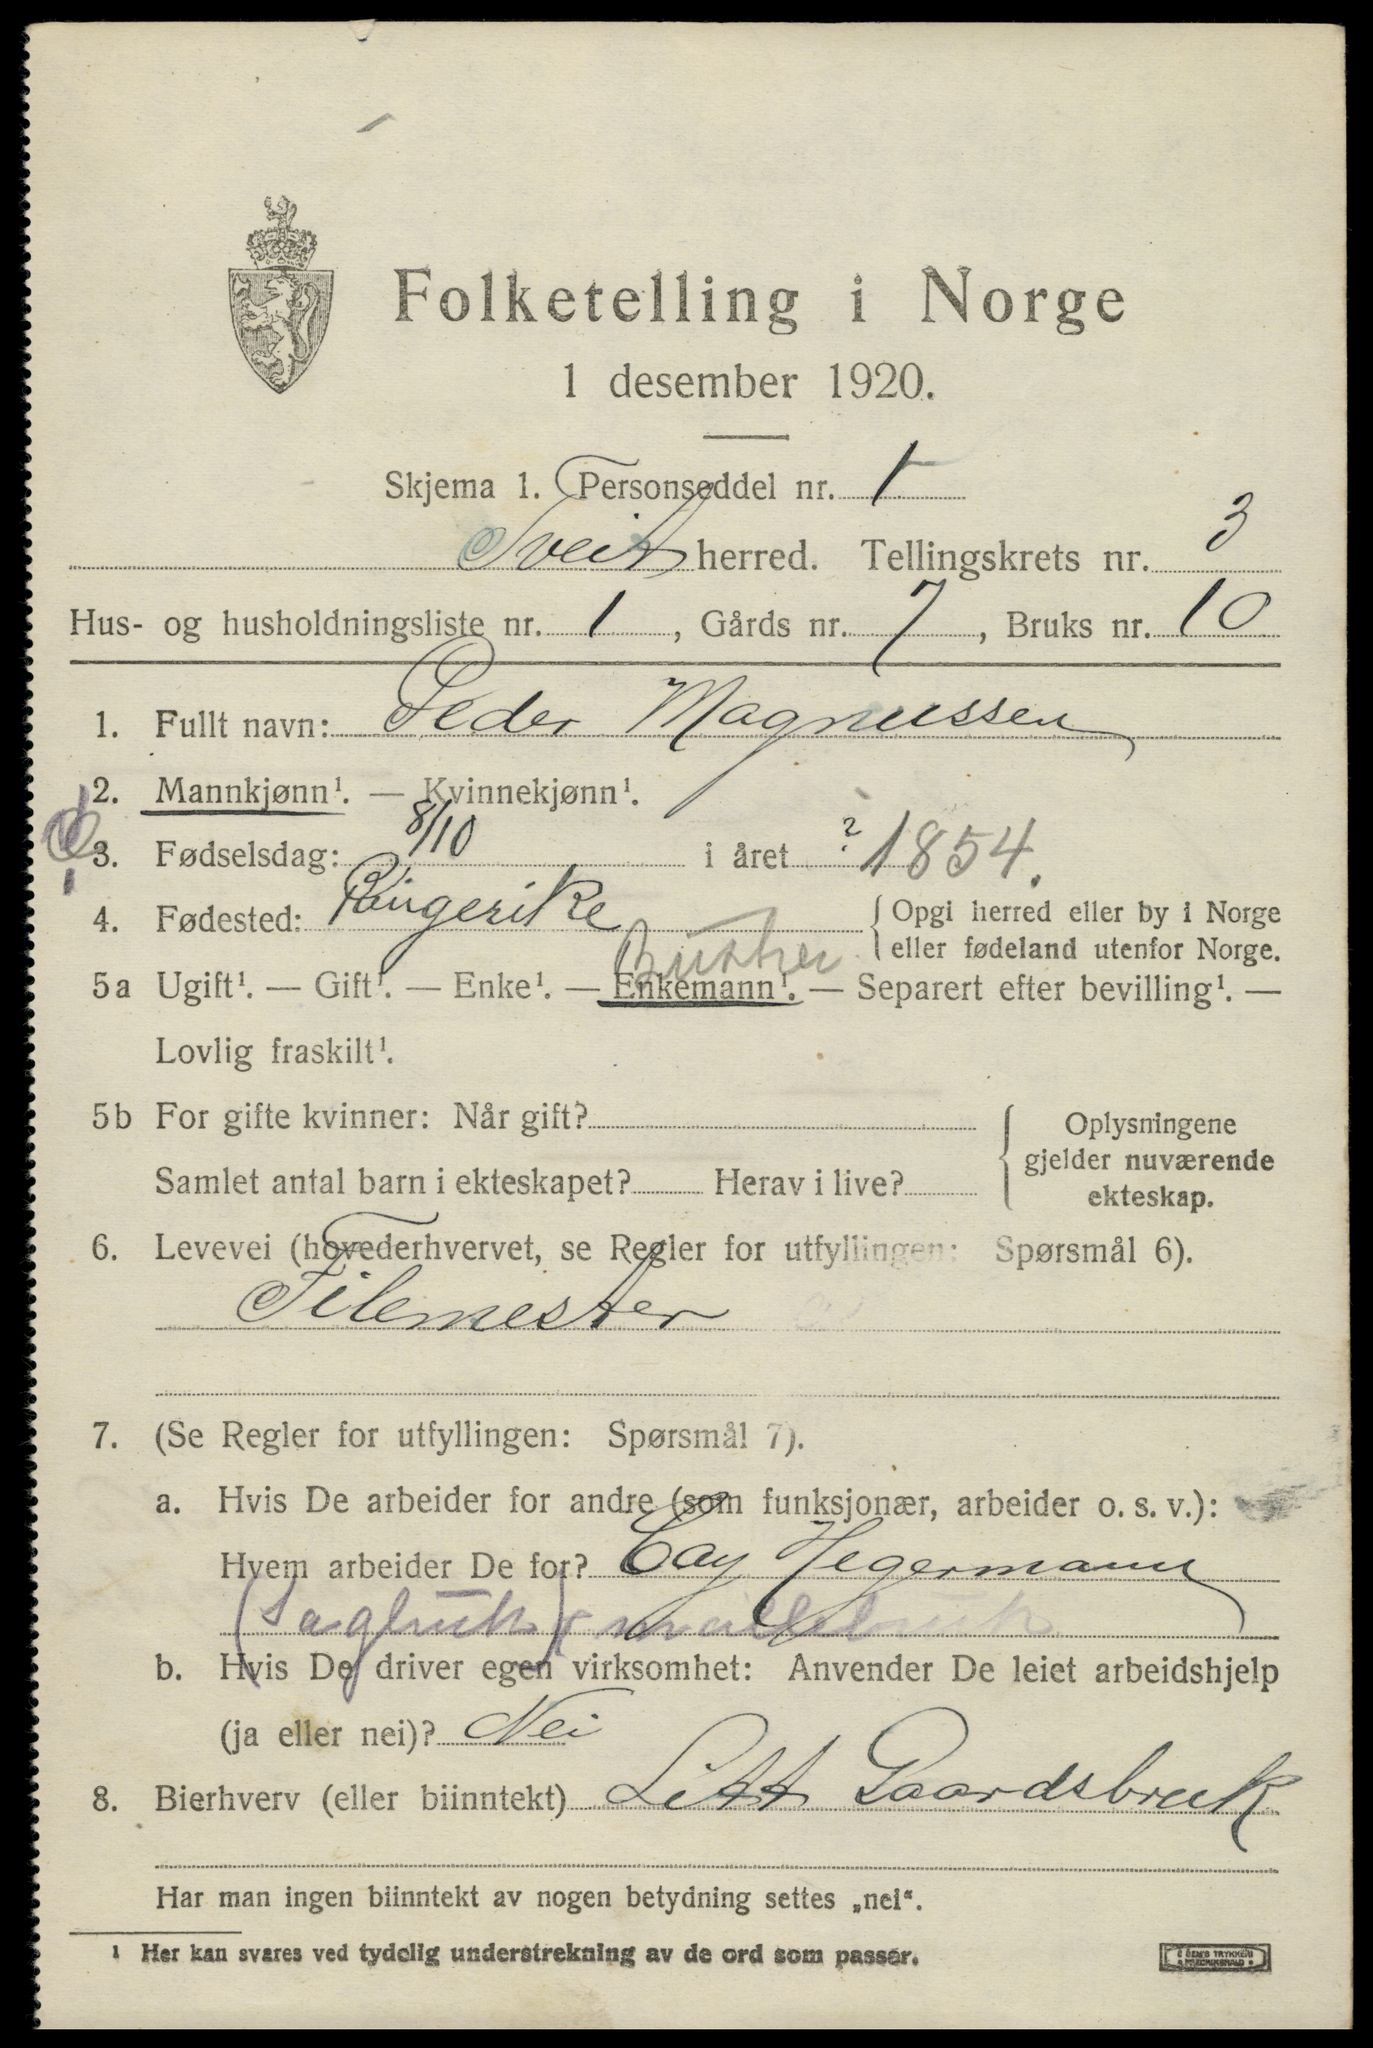 Folketelling i Norge
1 desember 1920.
Skjema 1. Personseddel nr. 1
Tveit herred. Tellingskrets nr. 3
Hus- og husholdningsliste nr. 1, Gårds nr. 7, Bruks nr. 10
1. Fullt navn: Peder Magnussen
2. Mannkjønn¹. — Kvinnekjønn¹.
3. Fødselsdag: 8/10 i året ? 1854.
4. Fødested: Ringerike { Opgi herred eller by i Norge
eller fødeland utenfor Norge.
5a Ugift¹. — Gift¹. — Enke¹. — Enkemann¹. — Separert efter bevilling¹. —
Lovlig fraskilt¹.
5b For gifte kvinner: Når gift? { Oplysningene
gjelder nuværende
ekteskap.
Samlet antal barn i ekteskapet? Herav i live?
6. Levevei (hovederhvervet, se Regler for utfyllingen: Spørsmål 6).
Filemester
7. (Se Regler for utfyllingen: Spørsmål 7).
a. Hvis De arbeider for andre (som funksjonær, arbeider o. s. v.):
Hvem arbeider De for? Cay Hegermann
(Sagbruk)
b. Hvis De driver egen virksomhet: Anvender De leiet arbeidshjelp
(ja eller nei)? Nei
8. Bierhverv (eller biinntekt) Litt Gaardsbruk
Har man ingen biinntekt av nogen betydning settes „nei“.
¹ Her kan svares ved tydelig understrekning av de ord som passer.